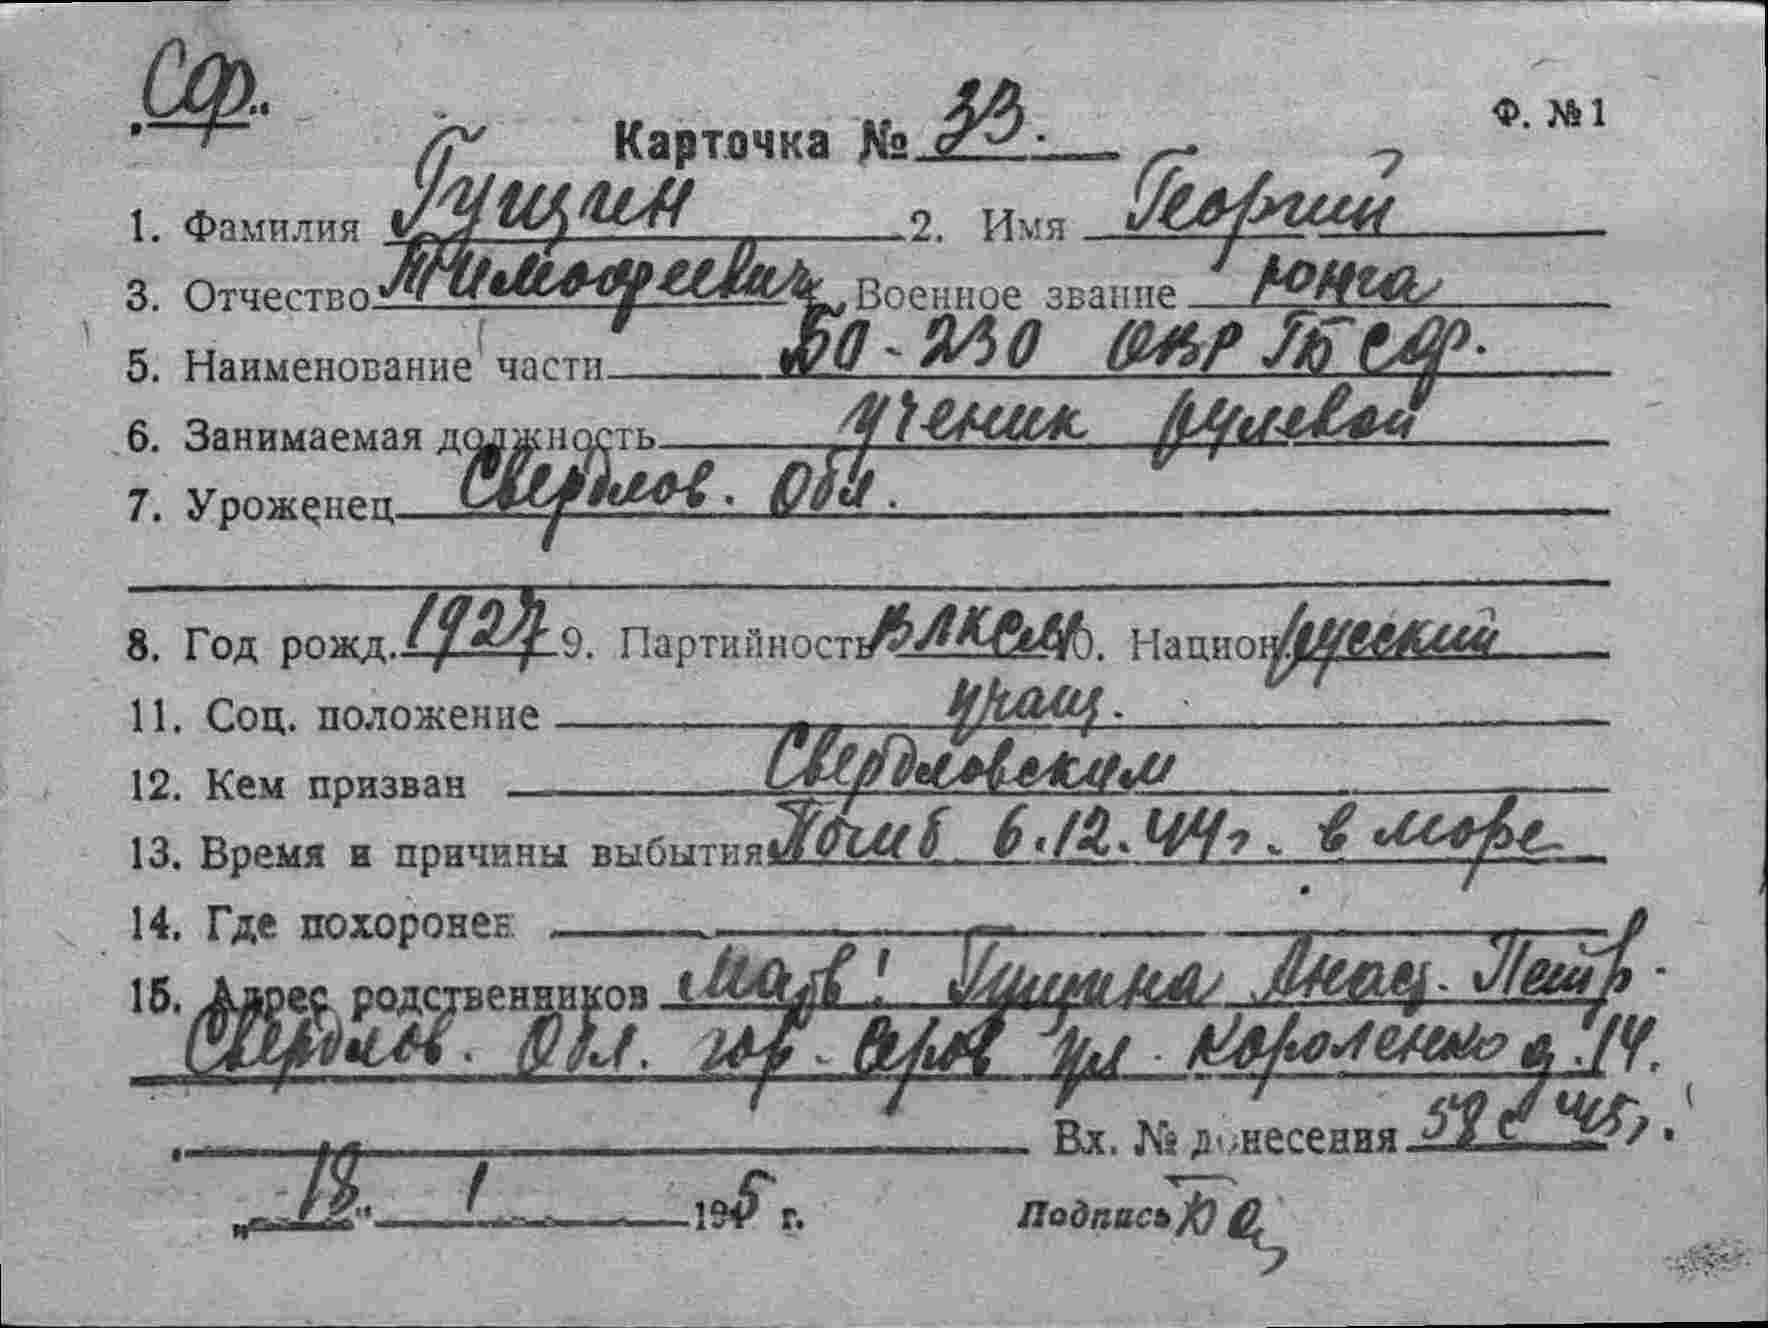 Сф.
Ф. № 1
Карточка № 33.
1. Фамилия Гущин 2. Имя Георгий
3. Отчество Тимофеевич Военное звание юнга
5. Наименование части БО-230 ОВР ГБ СФ.
6. Занимаемая должность ученик рулевой
7. Уроженец Свердлов. Обл.
8. Год рожд. 1927 9. Партийность ВЛКСМ 10. Национ. русский
11. Соц. положение учащ.
12. Кем призван Свердловским
13. Время и причины выбытия Погиб 6.12.44г. в море
14. Где похоронен
15. Адрес родственников Мать: Гущина Анаст. Петр.
Свердлов. Обл. гор. Серов ул. Короленко д. 14.
Вх. № донесения 58с 45г.
„18" 1 1945 г. Подпись